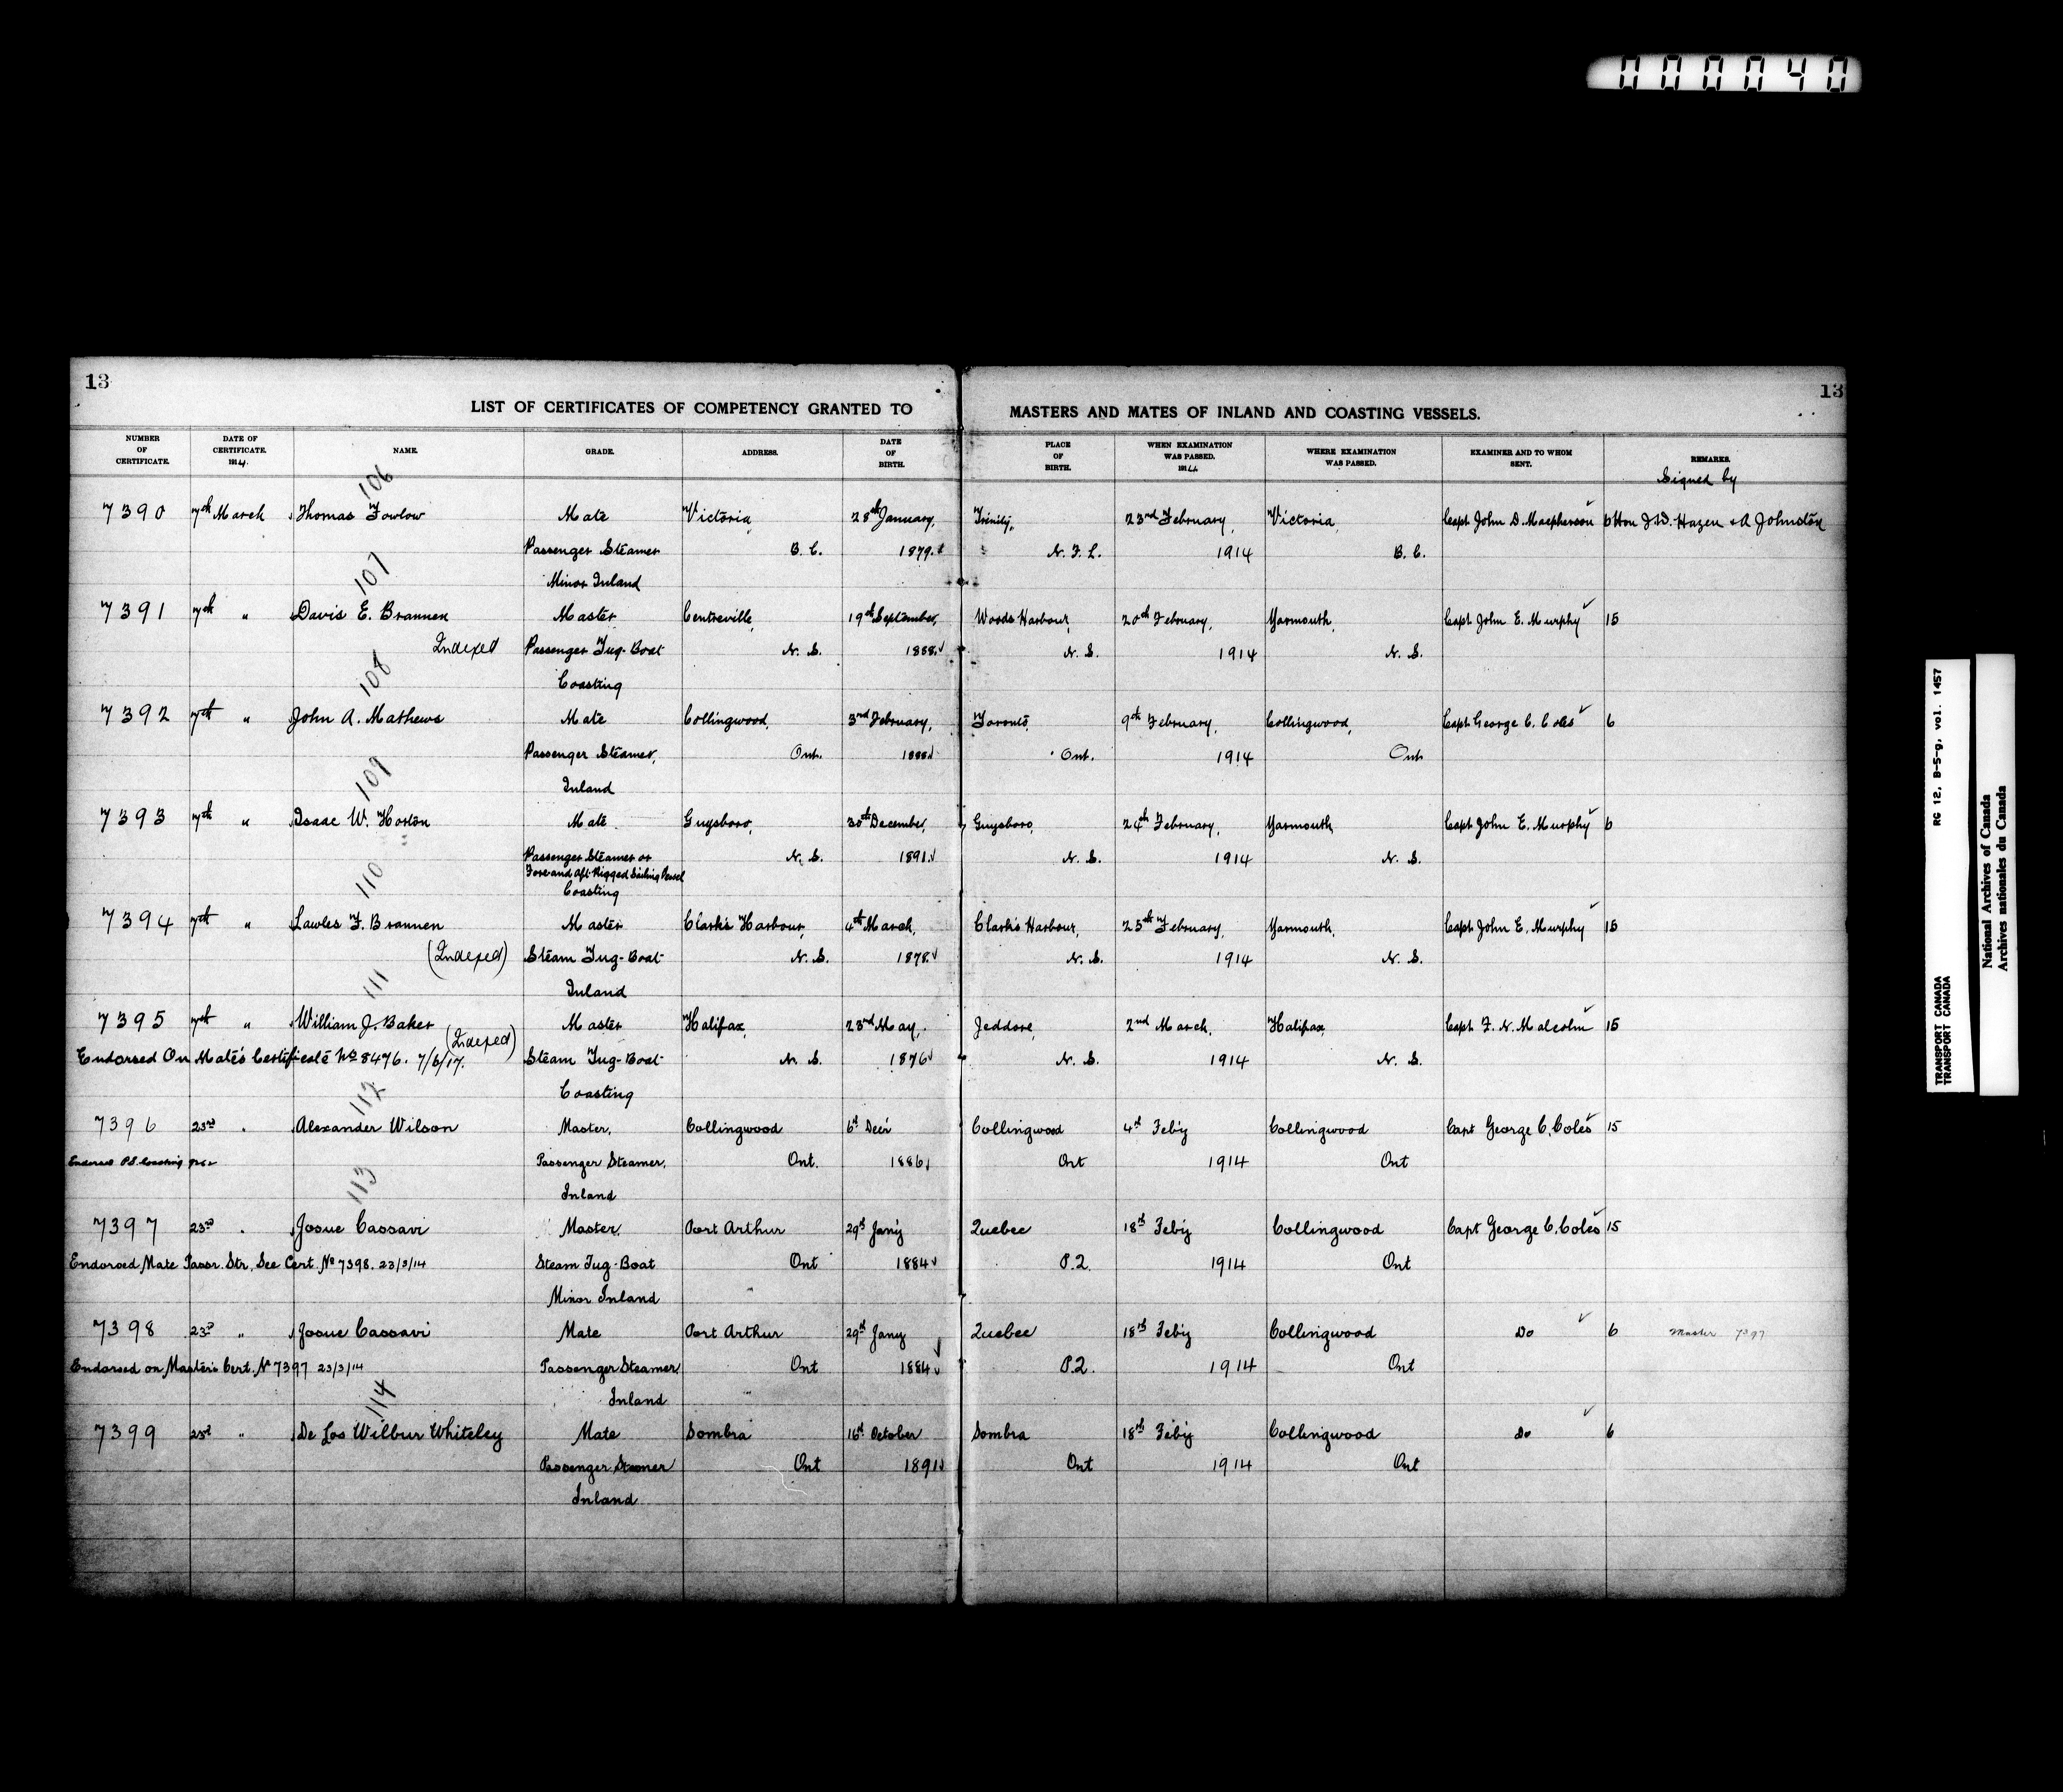 000040
13
13
LIST OF CERTIFICATES OF COMPETENCY GRANTED TO MASTERS AND MATES OF INLAND AND COASTING VESSELS.
NUMBER OF CERTIFICATE. DATE OF CERTIFICATE. 1914. NAME. GRADE. ADDRESS. DATE OF BIRTH. PLACE OF BIRTH. WHEN EXAMINATION WAS PASSED. 1914 WHERE EXAMINATION WAS PASSED. EXAMINER AND TO WHOM SENT. REMARKS.
Signed by
106
7390 7th March Thomas Fowlow Mate Victoria, 28th January, Trinity, 23rd February, Victoria, Capt John D. Macpherson 6 Hon J.D. Hazen & A Johnston
Passenger Steamer B. C. 1879. N. F. L. 1914 B. C.
Minor Inland
107
7391 7th " Davis E. Brannen Master Centreville, 19th September, Woods Harbour, 20th February, Yarmouth, Capt John E. Murphy 15
Indexed Passenger Tug-Boat N. S. 1888. N. S. 1914 N. S.
Coasting
108
7392 7th " John A. Mathews Mate Collingwood, 3rd February, Toronto, 9th February, Collingwood, Capt George C. Coles 6
Passenger Steamer, Ont. 1888 Ont. 1914 Ont
Inland
109
7393 7th " Isaac W. Horton Mate Guysboro, 30th December, Guysboro, 24th February, Yarmouth, Capt John E. Murphy 6
Passenger Steamer or N. S. 1891. N. S. 1914 N. S.
Fore-and Aft-Rigged Sailing Vessel
Coasting
110
7394 7th " Lawles F. Brannen Master Clark's Harbour, 4th March, Clark's Harbour, 25th February, Yarmouth, Capt John E. Murphy 15
(Indexed) Steam Tug-Boat N. S. 1878. N. S. 1914 N. S.
Inland
111
7395 7th " William J. Baker Master Halifax, 23rd May, Jeddore, 2nd March, Halifax, Capt F. N. Malcolm 15
(Indexed)
Endorsed On Mate's Certificate No 8476. 7/6/17. Steam Tug-Boat N. S. 1876 N. S. 1914 N. S.
Coasting
112
7396 23rd . Alexander Wilson Master, Collingwood 6th Decr Collingwood 4th Feb'y Collingwood Capt George C. Coles 15
Endorsed P.S. Coasting Passenger Steamer, Ont. 1886 Ont 1914 Ont
Inland
113
7397 23rd . Josue Cassavi Master, Port Arthur 29th Jan'y Quebec 18th Feb'y Collingwood Capt George C. Coles 15
Endorsed Mate Passr. Str, See Cert. No 7398. 23/3/14 Steam Tug-Boat Ont 1884 P.Q. 1914 Ont
Minor Inland
7398 23rd " Josue Cassavi Mate Port Arthur 29th Jany Quebec 18th Feb'y Collingwood Do 6 Master 7397
Endorsed on Master's Cert. No 7397 23/3/14 Passenger Steamer Ont 1884 P.Q. 1914 Ont
Inland
114
7399 23rd " De Los Wilbur Whiteley Mate Sombra 16th October Sombra 18th Feb'y Collingwood Do 6
Passenger Steamer Ont 1891 Ont 1914 Ont
Inland
RG 12, B-5-g, vol. 1457
TRANSPORT CANADA
TRANSPORT CANADA
National Archives of Canada
Archives nationales du Canada